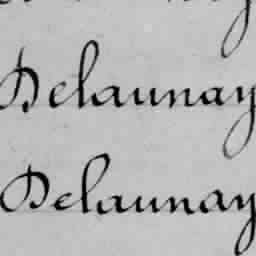 Delaunay
Delaunay